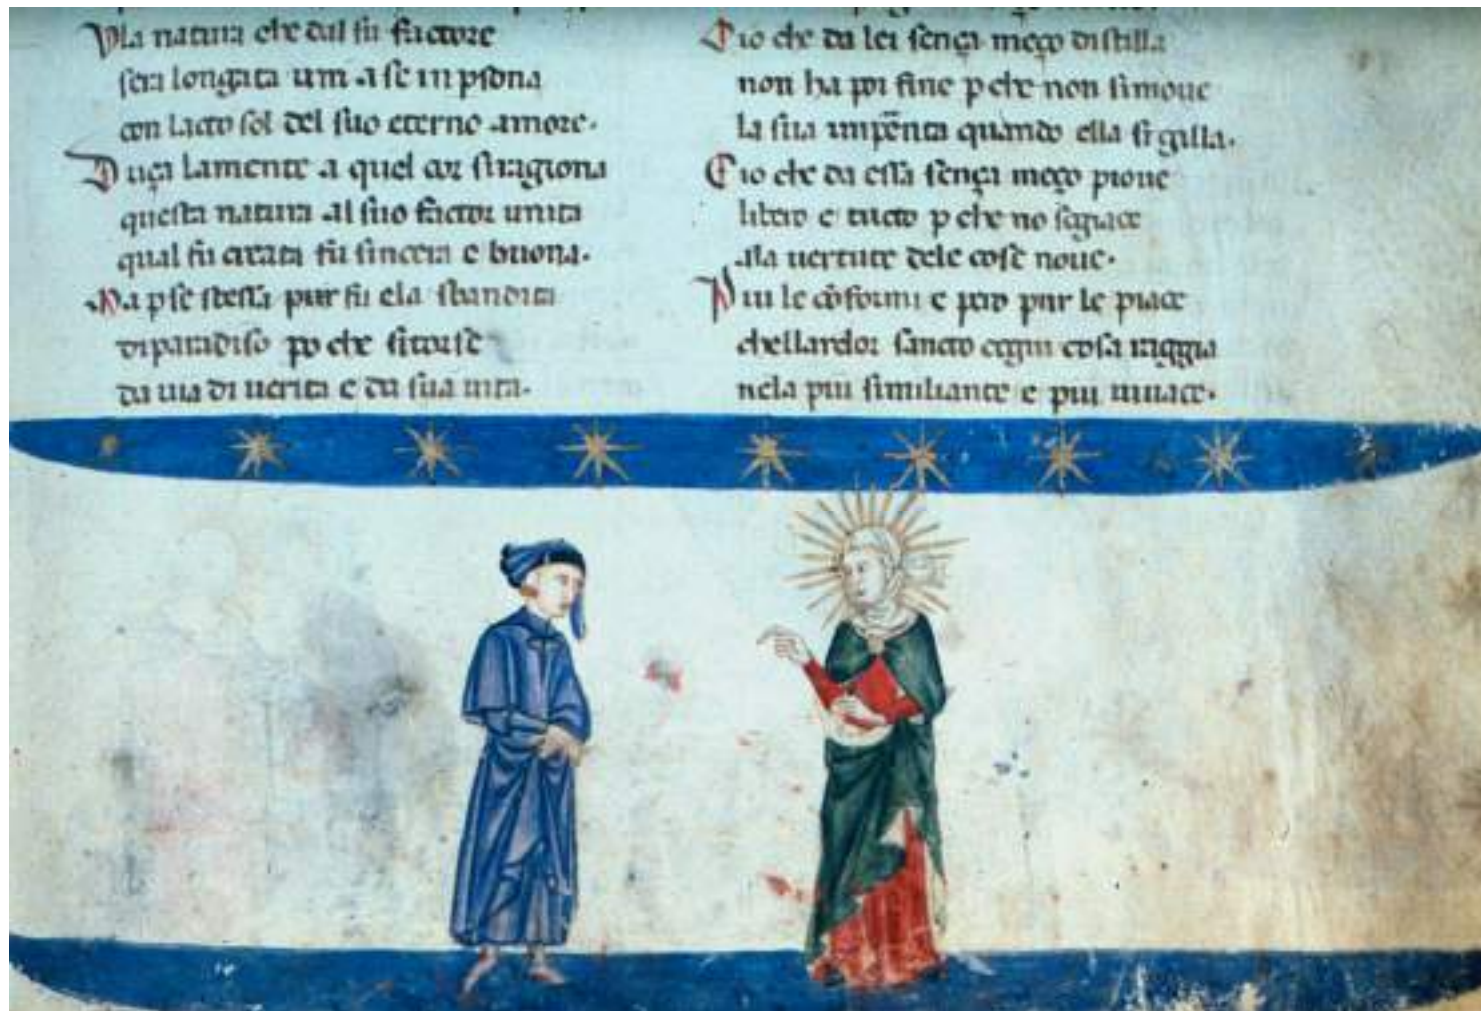 V la natura che dal su factore
sera longata um a se in psona
con lacto sol del suo eterno amore.
Driça lamente a quel cor siragiona
questa natura al suo factor unita
qual fu creata fu sincera e buona.
Ma pse stessa pur fu ela sbandita
diparadiso po che sitorse
da uia di uerita e da sua uita.
Cio che da lei sença meço distilla
non ha poi fine pche non simoue
la sua imprẽta quando ella sigilla.
Cio che da essa sença meço pioue
libero e tucto pche no sogiace
ala uertute dele cose noue.
Piu le cõformi e pero piu le piace
chellardor sancto cogni cosa raggia
nela piu similiante e piu uiuace.